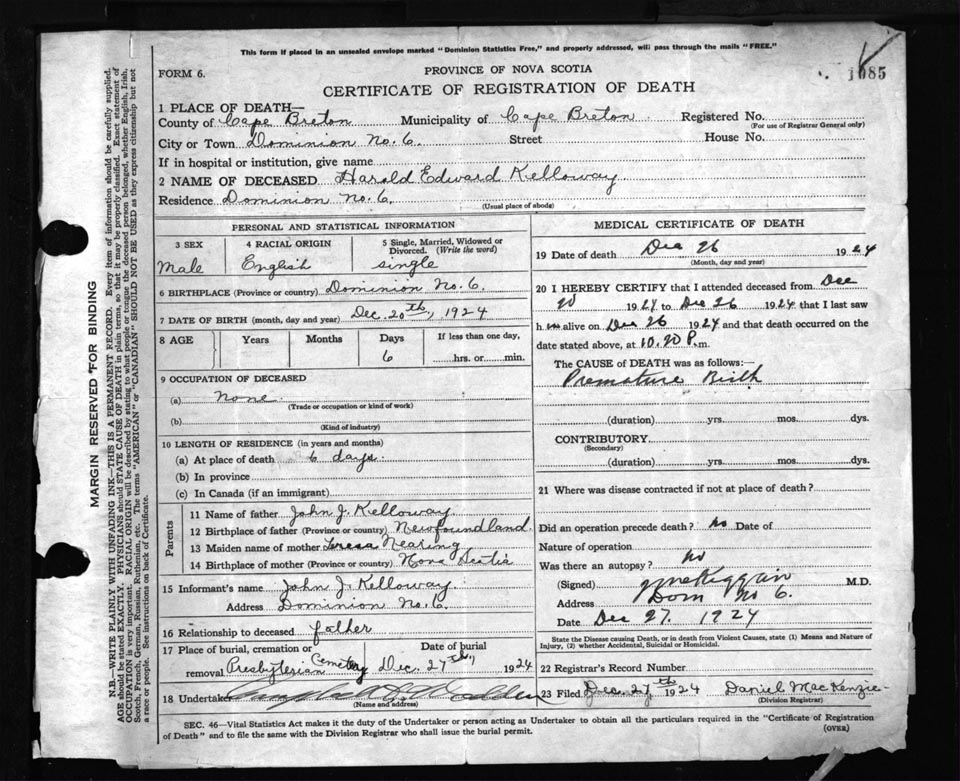 This form if placed in an unsealed envelope marked "Dominion Statistics Free," and properly addressed, will pass through the mails "FREE."
FORM 6.
PROVINCE OF NOVA SCOTIA
1085
CERTIFICATE OF REGISTRATION OF DEATH
1 PLACE OF DEATH—
County of Cape Breton Municipality of Cape Breton Registered No.
(For use of Registrar General only)
City or Town Dominion No. 6. Street House No.
If in hospital or institution, give name
2 NAME OF DECEASED Harold Edward Kelloway
Residence Dominion No. 6.
(Usual place of abode)
PERSONAL AND STATISTICAL INFORMATION
3 SEX 4 RACIAL ORIGIN 5 Single, Married, Widowed or
Divorced. (Write the word)
Male English single
6 BIRTHPLACE (Province or country) Dominion No. 6.
7 DATE OF BIRTH (month, day and year) Dec. 20th, 1924
8 AGE Years Months Days If less than one day,
6 hrs. or min.
9 OCCUPATION OF DECEASED
(a) None.
(Trade or occupation or kind of work)
(b)
(Kind of industry)
10 LENGTH OF RESIDENCE (in years and months)
(a) At place of death 6 days.
(b) In province
(c) In Canada (if an immigrant)
Parents
11 Name of father John J. Kelloway
12 Birthplace of father (Province or country) Newfoundland.
13 Maiden name of mother Teresa Nearing
14 Birthplace of mother (Province or country) Nova Scotia
15 Informant's name John J. Kelloway.
Address Dominion No. 6.
16 Relationship to deceased father
17 Place of burial, cremation or
removal Presbyterion Cemetery Dec. 27th, 1924
18 Undertaker
(Name and address)
MEDICAL CERTIFICATE OF DEATH
19 Date of death Dec 26 1924
(Month, day and year)
20 I HEREBY CERTIFY that I attended deceased from Dec
20 1924 to Dec 26 1924 that I last saw
h im alive on Dec 26 1924 and that death occurred on the
date stated above, at 10.20 P.m.
The CAUSE of DEATH was as follows:—
Premature Birth
(duration) yrs. mos. dys.
CONTRIBUTORY
(Secondary)
(duration) yrs. mos. dys.
21 Where was disease contracted if not at place of death?
Did an operation precede death? No Date of
Nature of operation
Was there an autopsy? No
(Signed) M.D.
Address Dom No 6.
Date Dec 27. 1924
State the Disease causing Death, or in death from Violent Causes, state (1) Means and Nature of
Injury, (2) whether Accidental, Suicidal or Homicidal.
22 Registrar's Record Number
23 Filed Dec. 27th 1924 Daniel MacKenzie
(Division Registrar)
SEC. 46—Vital Statistics Act makes it the duty of the Undertaker or person acting as Undertaker to obtain all the particulars required in the "Certificate of Registration
of Death" and to file the same with the Division Registrar who shall issue the burial permit.
(OVER)
MARGIN RESERVED FOR BINDING
N.B.—WRITE PLAINLY WITH UNFADING INK—THIS IS A PERMANENT RECORD. Every item of information should be carefully supplied.
AGE should be stated EXACTLY. PHYSICIANS should STATE CAUSE OF DEATH in plain terms, so that it may be properly classified. Exact statement of
OCCUPATION is very important. RACIAL ORIGIN will be described by stating to what people or tongue the deceased person belonged, whether English, Irish,
Scotch, French, German, Russian, Ruthenian, etc. The terms "AMERICAN" or "CANADIAN" SHOULD NOT BE USED as they express citizenship but not
a race or people. See instructions on back of Certificate.